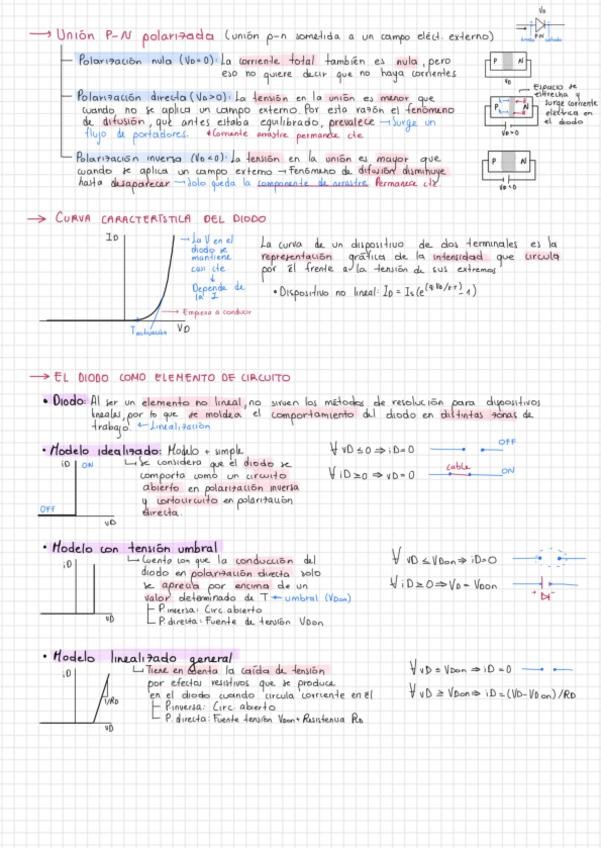 → Unión P-N polarizada (unión p-n sometida a un campo eléct. externo)
VD
P-N
Polarización nula (VD=0): La corriente total también es nula, pero
eso no quiere decir que no haya corrientes
P N
VD
Polarización directa (VD>0): La tensión en la unión es menor que
cuando no se aplica un campo externo. Por esta razón el fenómeno
de difusión, que antes estaba equilibrado, prevalece → Surge un
flujo de portadores. *Corriente arrastre permanece cte
Espacio se
estrecha y
surge corriente
eléctrica en
el diodo
P N
VD>0
Polarización inversa (VD<0): La tensión en la unión es mayor que
cuando se aplica un campo externo → Fenómeno de difusión disminuye
hasta desaparecer → Solo queda la componente de arrastre Permanece cte
P N
VD<0
→ CURVA CARACTERÍSTICA DEL DIODO
ID
→ La V en el
diodo se
mantiene
casi cte
↓
Depende de
la I
→ Empieza a conducir
VD
La curva de un dispositivo de dos terminales es la
representación gráfica de la intensidad que circula
por él frente a la tensión de sus extremos
• Dispositivo no lineal: ID = IS(e^(qVD/KT) -1)
→ EL DIODO COMO ELEMENTO DE CIRCUITO
• Diodo: Al ser un elemento no lineal, no sirven los métodos de resolución para dispositivos
lineales, por lo que se moldea el comportamiento del diodo en distintas zonas de
trabajo ← Linealización
• Modelo idealizado: Modelo + simple
iD ON
OFF
vD
↳ Se considera que el diodo se
comporta como un circuito
abierto en polarización inversa
y cortocircuito en polarización
directa.
∀ vD ≤ 0 ⇒ iD = 0 OFF
∀ iD ≥ 0 ⇒ vD = 0 cable ON
• Modelo con tensión umbral
iD
vD
↳ Cuenta con que la conducción del
diodo en polarización directa solo
se aprecia por encima de un
valor determinado de T ← umbral (VDon)
P. inversa: Circ. abierto
P. directa: Fuente de tensión VDon
∀ vD ≤ VDon ⇒ iD = 0
∀ iD ≥ 0 ⇒ VD = VDon
• Modelo linealizado general
iD
1/RD
vD
↳ Tiene en cuenta la caída de tensión
por efectos resistivos que se produce
en el diodo cuando circula corriente en él
P. inversa: Circ. abierto
P. directa: Fuente tensión VDon + Resistencia RD
∀ vD = VDon ⇒ iD = 0
∀ vD ≥ VDon ⇒ iD = (VD-VDon)/RD